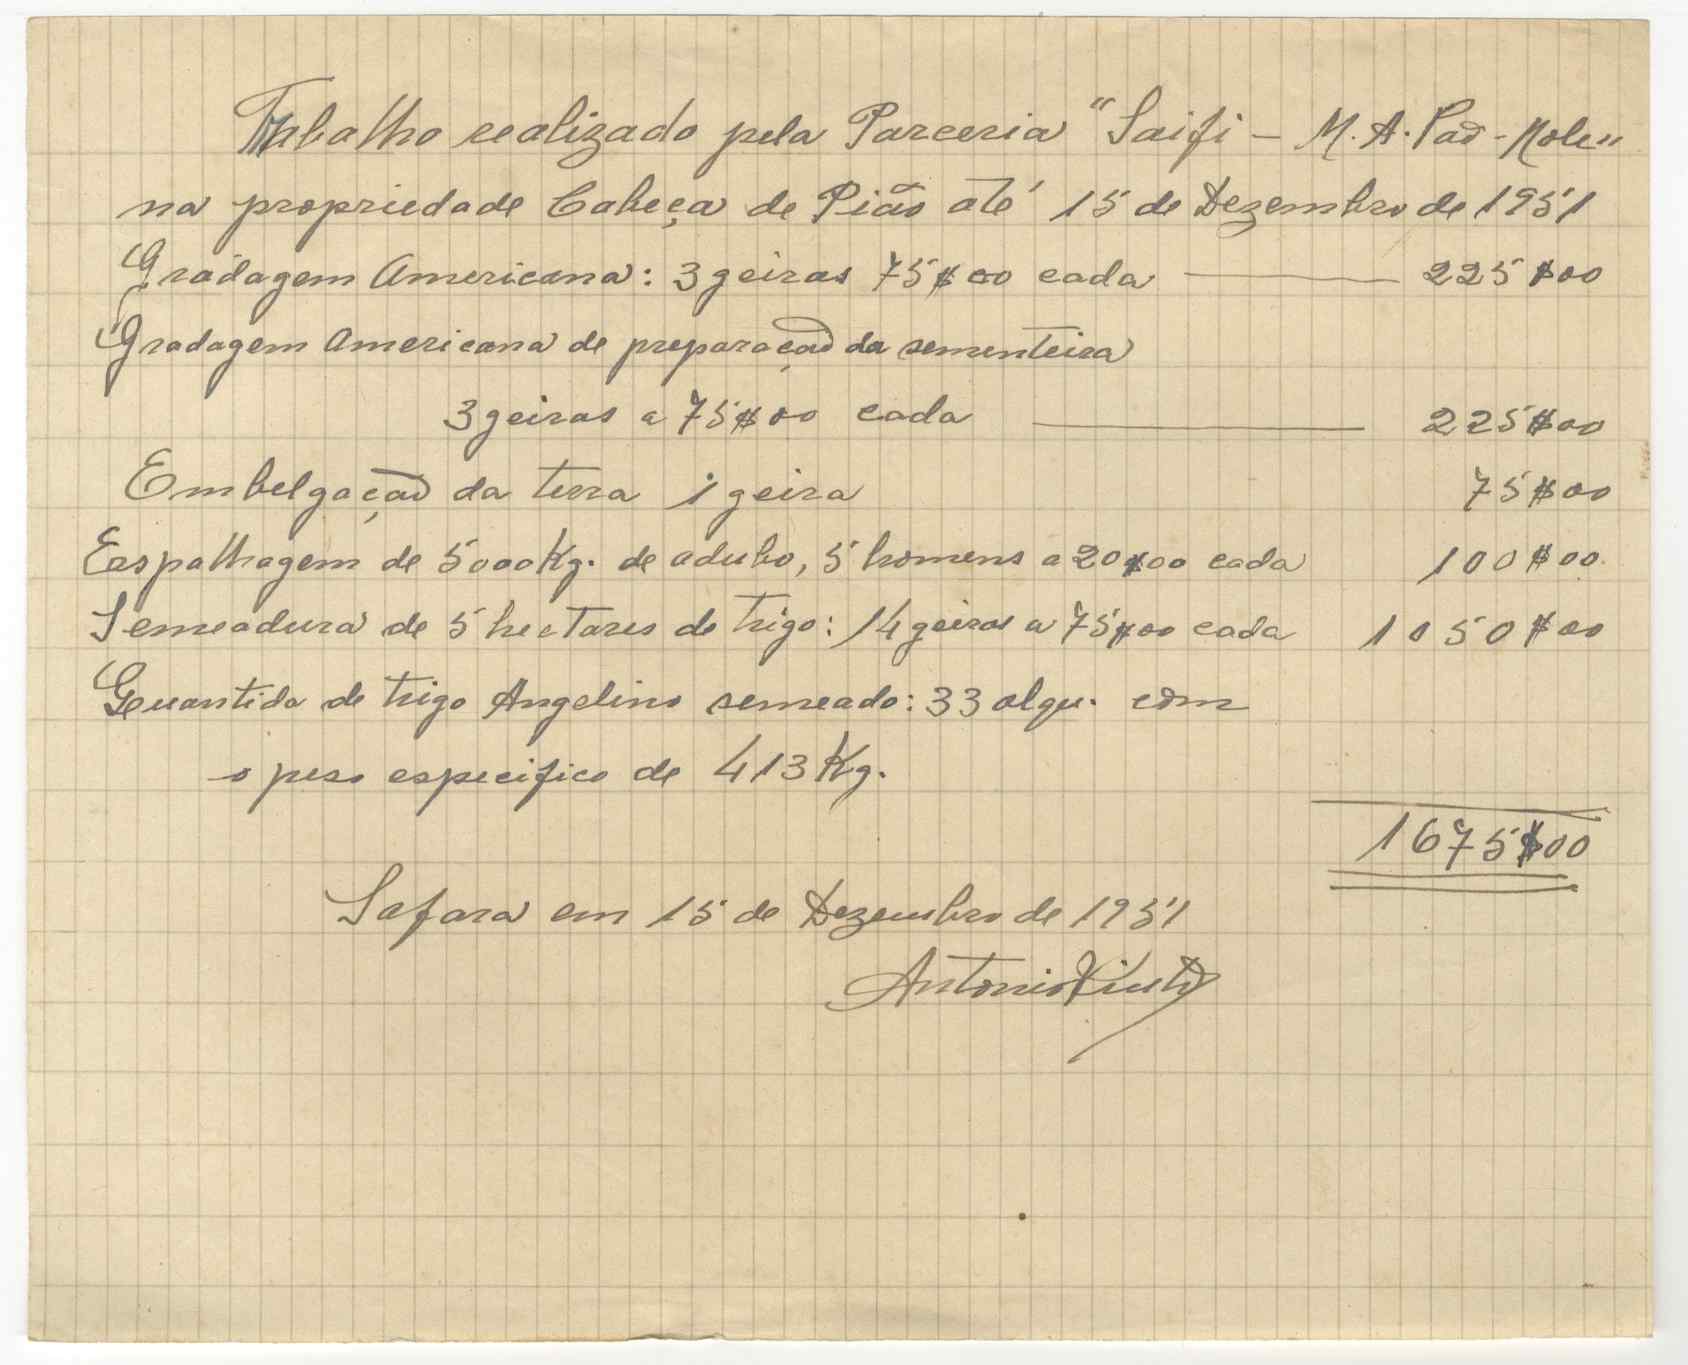 Trabalho realizado pela Parceria "Saifi - M. A. Pão-Mole"
na propriedade Cabeça de Pião até 15 de Dezembro de 1951
Gradagem Americana: 3 geiras 75$00 cada — 225$00
Gradagem Americana de preparação da sementeira
3 geiras a 75$00 cada — 225$00
Embelgação da terra 1 geira 75$00
Espalhagem de 5000 Kg. de adubo, 5 homens a 20$00 cada 100$00
Semeadura de 5 hectares de trigo: 14 geiras a 75$00 cada 1050$00
Quantida de trigo Angelino semeado: 33 alqu. com
o peso especifico de 413 Kg.
1675$00
Safara em 15 de Dezembro de 1951
Antonio